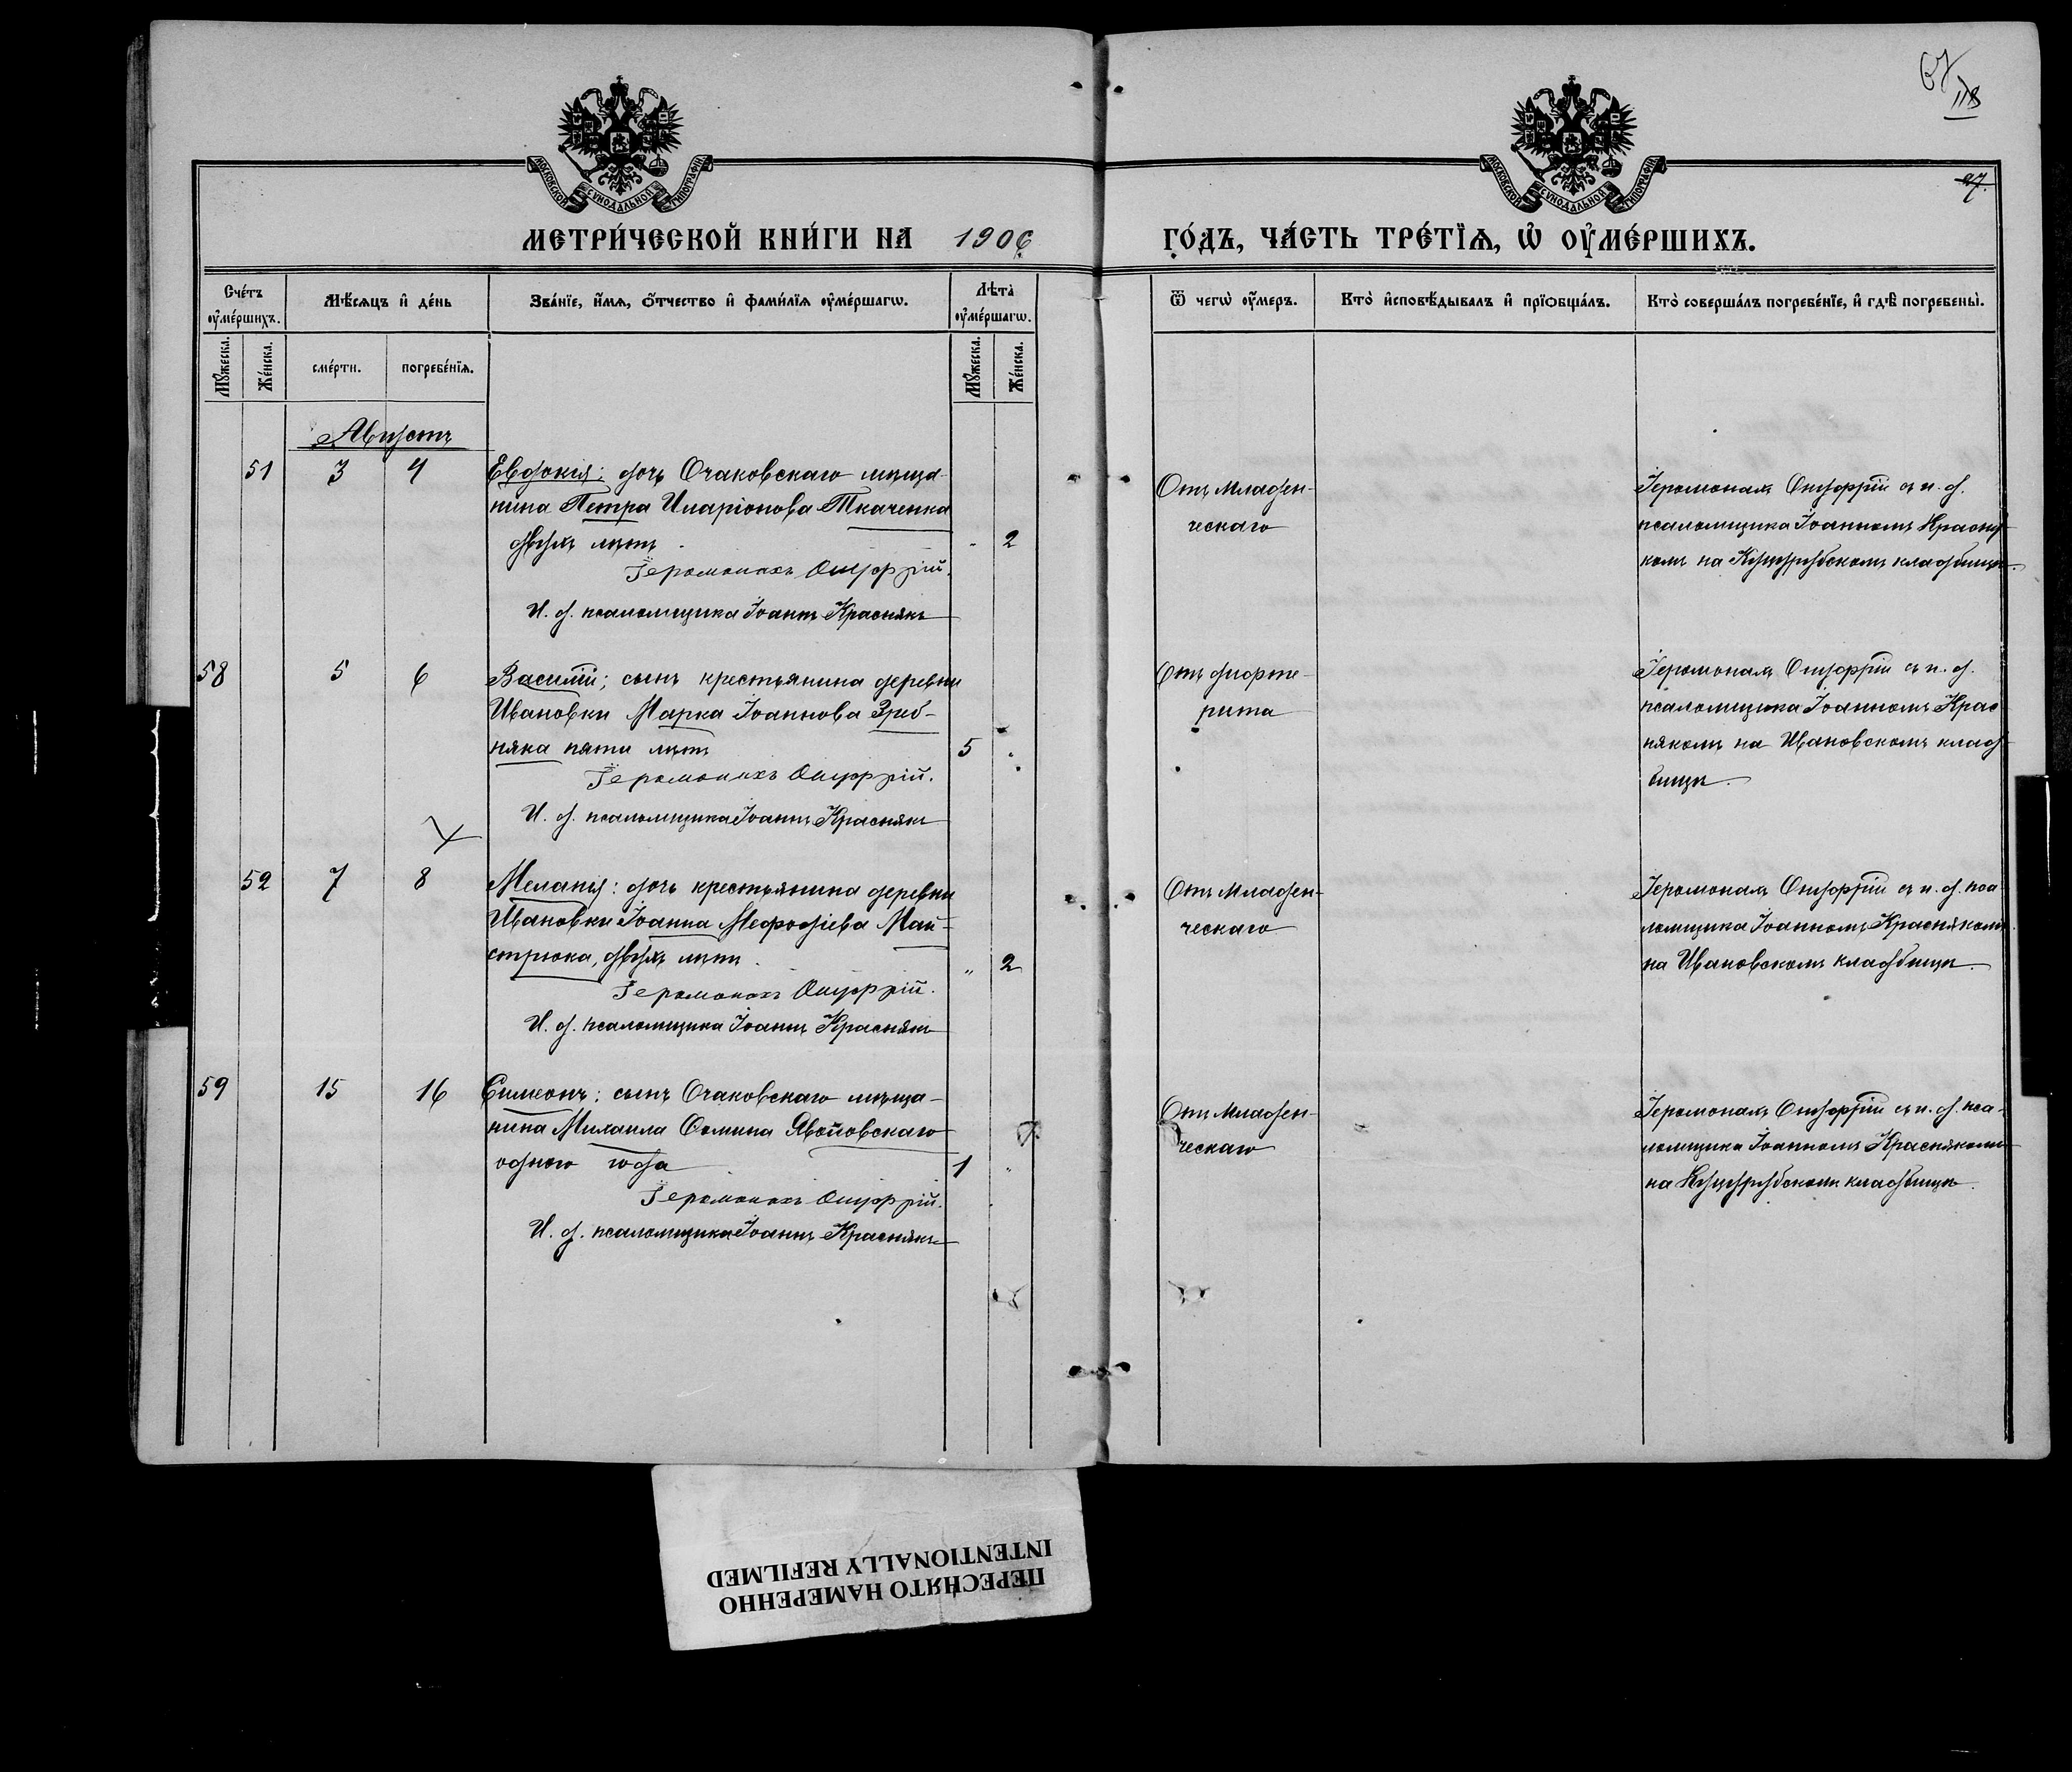 67
118
97.
МОСКОВСКОЙ СУНОДАЛЬНОЙ ТИПОГРАФІИ
МОСКОВСКОЙ СУНОДАЛЬНОЙ ТИПОГРАФІИ
МЕТРИ́ЧЕСКОЙ КНИ́ГИ НА 1906 ГО́ДЪ, ЧА́СТЬ ТРЕ́ТЇѦ, Ѡ҆ ОУ҆МЕ́РШИХЪ.
Сче́тъ оу҆ме́ршихъ.
Мѣ́сяцъ и҆ де́нь
Зва́нїе, и҆́мѧ, ѻ҆́тчество и҆ фами́лїѧ оу҆ме́ршагѡ.
Лѣта̀ оу҆ме́ршагѡ.
Ѿ чегѡ̀ оу҆́меръ.
Кто̀ и҆сповѣ́дывалъ и҆ прїѻбща́лъ.
Кто̀ соверша́лъ погребе́нїе, и҆ гдѣ̀ погребены̀.
Мꙋ́жеска.
Же́нска.
сме́рти.
погребе́нїѧ.
Мꙋ́жеска.
Же́нска.
Августъ
51 3 4 Евдокія: дочь Очаковскаго мѣща-
нина Петра Иларіонова Ткаченка
двухъ лѣтъ. " 2
Іеромонахъ Онуфрій.
И. д. псаломщика Іоаннъ Краснякъ
Отъ младен-
ческаго
Іеромонахъ Онуфрій съ и. д.
псаломщика Іоанномъ Красня-
комъ на Куцурубскомъ кладбищѣ.
58 5 6 Василій; сынъ крестьянина деревни
Ивановки Марка Іоаннова Зреб-
няка пяти лѣтъ 5 "
Іеромонахъ Онуфрій.
И. д. псаломщика Іоаннъ Краснякъ
Отъ дифте-
рита
Іеромонахъ Онуфрій съ и. д.
псаломщика Іоанномъ Крас
някомъ на Ивановскомъ клад-
бищѣ.
52 7 8 Меланія: дочь крестьянина деревни
Ивановки Іоанна Мефодіева Май-
стрюка, двухъ лѣтъ. " 2
Іеромонахъ Онуфрій.
И. д. псаломщика Іоаннъ Краснякъ
Отъ младен-
ческаго
Іеромонахъ Онуфрій съ и. д. пса-
ломщика Іоанномъ Краснякомъ
на Ивановскомъ кладбищѣ.
59 15 16 Симеонъ: сынъ Очаковскаго мѣща-
нина Михаила Ѳомина
одного года 1 "
Іеромонахъ Онуфрій.
И. д. псаломщика Іоаннъ Краснякъ
Отъ младен-
ческаго
Іеромонахъ Онуфрій съ и. д. пса-
ломщика Іоанномъ Краснякомъ
на Куцурубскомъ кладбищѣ.
ПЕРЕСНЯТО НАМЕРЕННО
INTENTIONALLY REFILMED